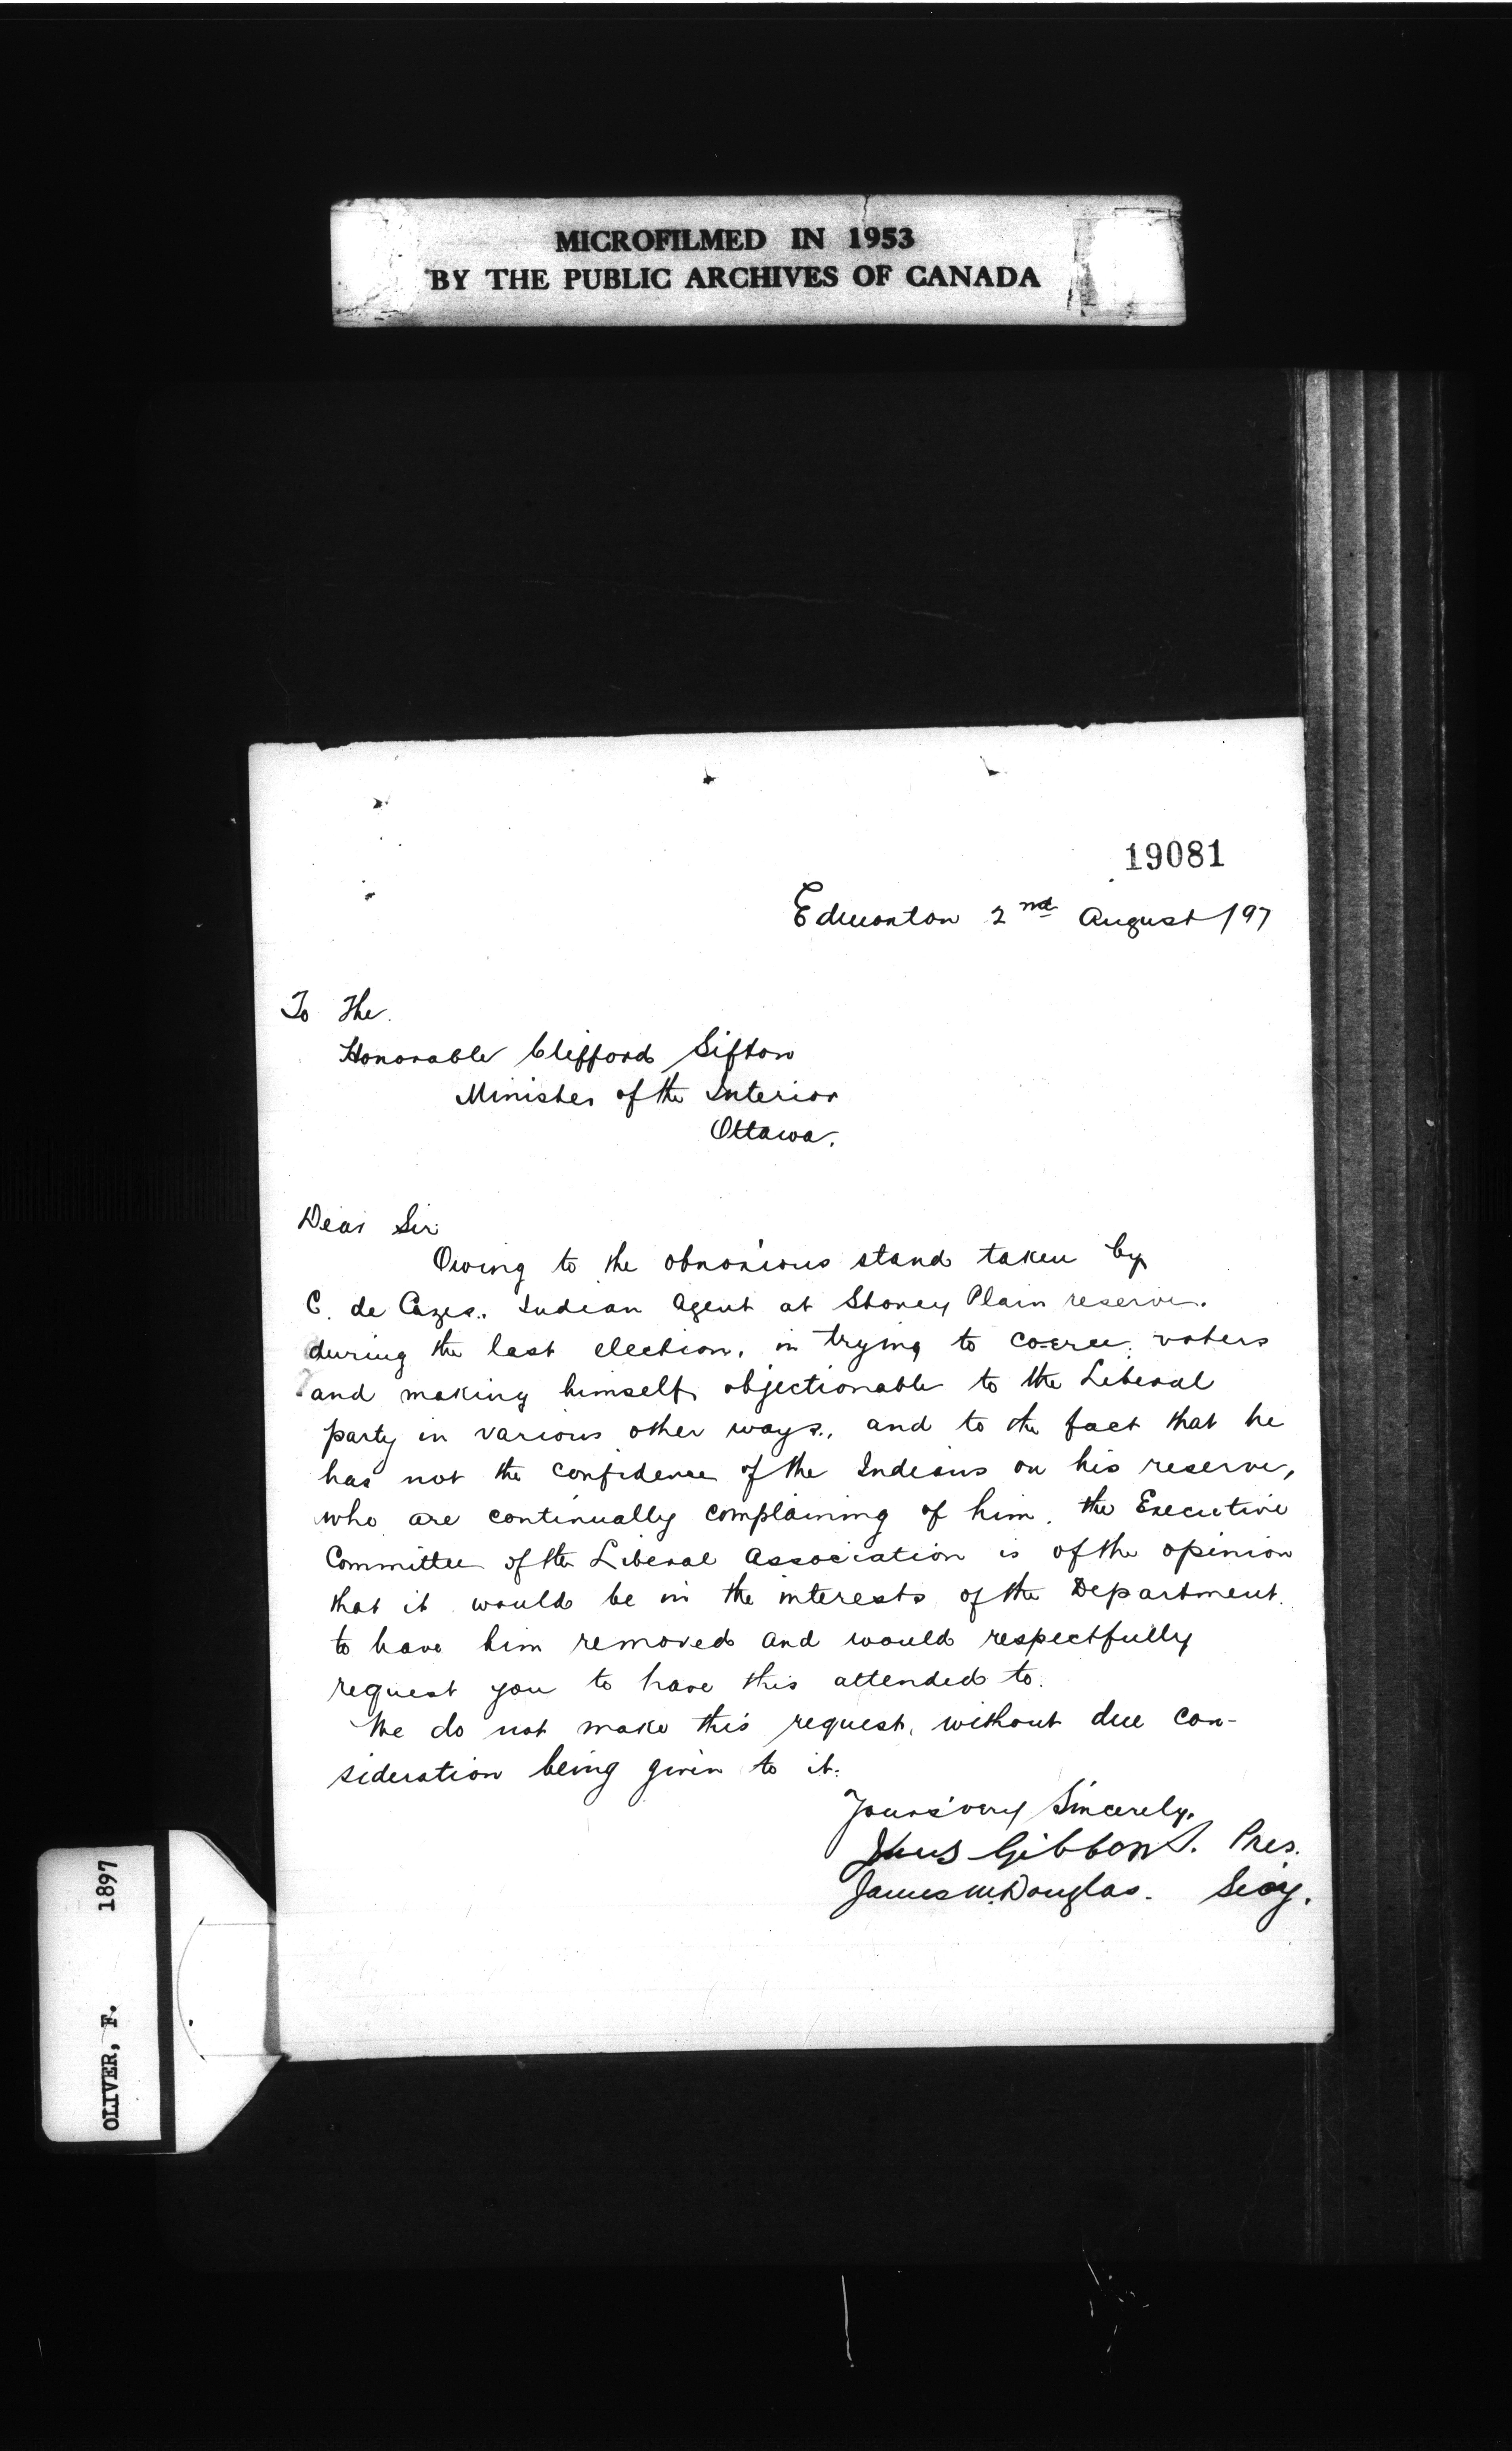 MICROFILMED IN 1953
BY THE PUBLIC ARCHIVES OF CANADA
19081
Edmonton 2nd August /97
To The
Honorable Clifford Sifton
Minister of the Interior
Ottawa.
Dear Sir
Owing to the obnoxious stand taken by
C. de Cazes. Indian Agent at Stoney Plain reserve.
during the last election, in trying to coerce voters
and making himself objectionable to the Liberal
party in various other ways, and to the fact that he
has not the confidence of the Indians on his reserve,
who are continually complaining of him, the Executive
Committee of the Liberal Association is of the opinion
that it would be in the interests of the Department
to have him removed and would respectfully
request you to have this attended to.
We do not make this request, without due con-
sideration being given to it.
Yours very Sincerely.
Gibbons. Pres.
James McDouglas. Secy.
OLIVER, F. 1897